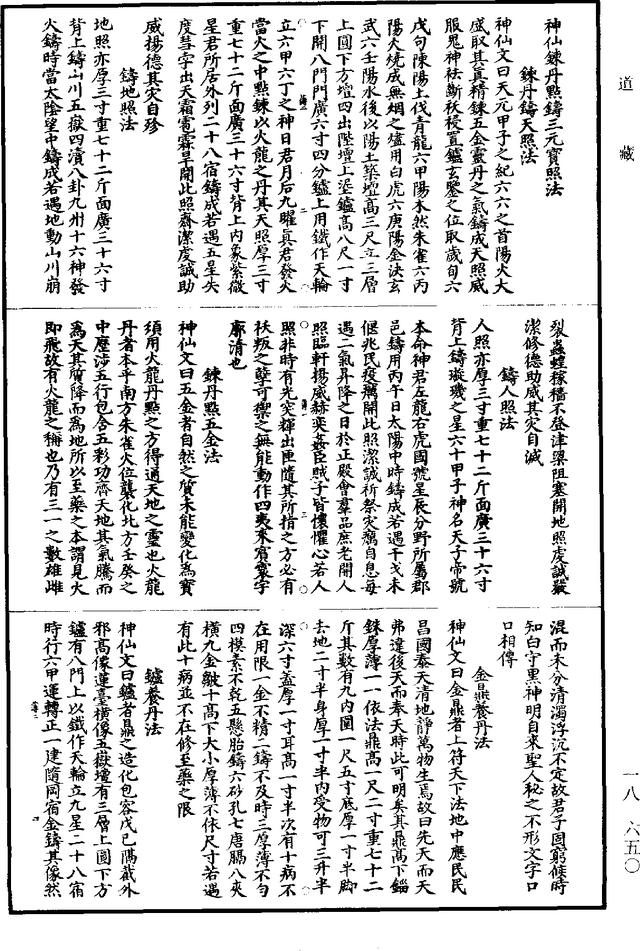 道藏
神仙鍊丹點鑄三元寶照法
鍊丹鑄天照法
神仙文曰天元甲子之紀六六之首陽火大
盛取其真精鍊五金靈丹之氣鑄成天照威
服鬼神袪斷秡祲置鑪玄鑒之位取歲旬六
戊句陳陽土伐青龍六甲陽木然朱雀六丙
陽火燒成無烟之燼用白虎六庚陽金決玄
武六壬陽水後以陽土築壇高三尺立三層
上圓下方壇四出陛壇上泥鑪高八尺一寸
下開八門門廣六寸四分鑪上用鐵作天輪
立六甲六丁之神日君月后九曜真君發火
當火之中點鍊以火龍之丹其天照厚三寸
重七十二斤面廣三十六寸背上內象紫微
星君所居外列二十八宿鑄成若遇五星失
度彗孛出天霜雹霖旱開此照齋潔虔誠助
威揚德其灾自殄
鑄地照法
地照亦厚三寸重七十二斤面廣三十六寸
背上鑄山川五嶽四瀆八卦九州十六神發
火鑄時當太陰望中鑄成若遇地動山川崩
裂蟲蝗稼穡不登津梁阻塞開地照虔誠嚴
潔修德助威其灾自減
鑄人照法
人照亦厚三寸重七十二斤面廣三十六寸
背上鑄璇璣之星六十甲子神名天子帝號
本命神君左龍右虎國號星辰分野所屬郡
邑鑄用丙午日太陽中時鑄成若遇干戈未
偃兆民疫癘開此照潔誠祈祭灾癘自息每
遇二氣昇降之日於正殿會羣品庶老開人
照臨軒揚威赫奕姦臣賊子皆懷懼心若人
照非時有光突輝出匣隨其所指之方必有
秡叛之孽可禦之無能動作四夷來賓寰宇
廓清也
鍊丹點五金法
神仙文曰五金者自然之質未能變化為寶
須用火龍丹點之方得通天地之靈也火龍
丹者本乎南方朱雀火位龔化北方壬癸之
中歷涉五行包含五彩功齊天地其氣騰而
為天其質降而為地所以至藥之本謂見火
即飛故有火龍之稱也乃有三一之數雄雌
混而未分清濁浮沉不定故君子固窮候時
知白守黑神明自來聖人秘之不形文字口
口相傳
金鼎養丹法
神仙文曰金鼎者上符天下法地中應民民
昌國泰天清地靜萬物生焉故曰先天而天
弗違後天而奉天時此可明矣其鼎高下錙
銖厚薄一一依法鼎高一尺二寸重七十二
斤其數有九內圍一尺五寸底厚一寸半脚
去地二寸半身厚一寸半內受物可三升半
深六寸蓋厚一寸耳高一寸半次有十病不
在用限一金不精二鑄不及時三厚薄不勻
四模素不乾五懸胎鑄六砂孔七唐膈八夾
橫九金皺十高下大小厚薄不依尺寸若遇
有此十病並不在修至藥之限
鑪養丹法
神仙文曰鑪者鼎之造化包容戊己隔截外
邪高像蓮臺橫像五嶽壇有三層上圓下方
鑪有八門上以鐵作天輪立九星二十八宿
時行六甲運轉正一建隨罡宿金鑄其像然
一八　六五〇